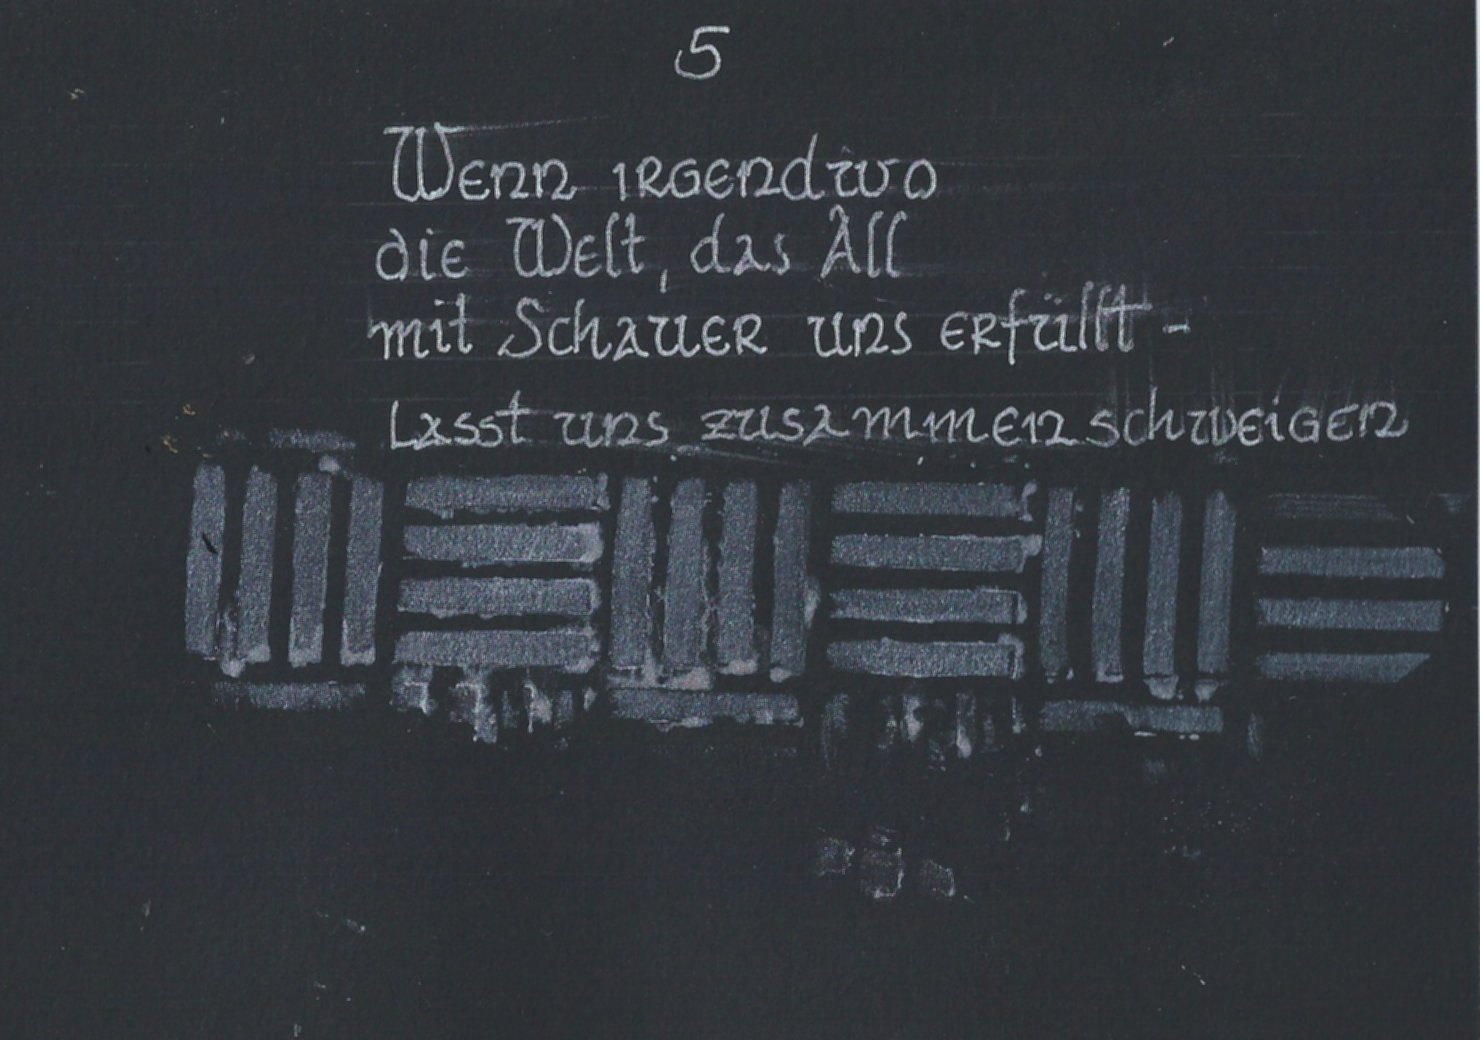 5
Wenn irgendwo
die Welt, das All
mit Schauer uns erfüllt -
Lasst uns zusammen schweigen